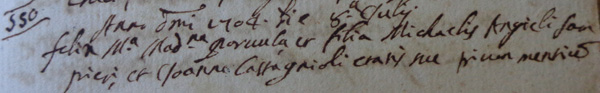 550
Anno dni 1704. Die 8.a Julij
felix M.a Mad.na parvula et filia Michaelis Angeli San
pieri, et Joanne Castagnioli etatis sue primum mensium